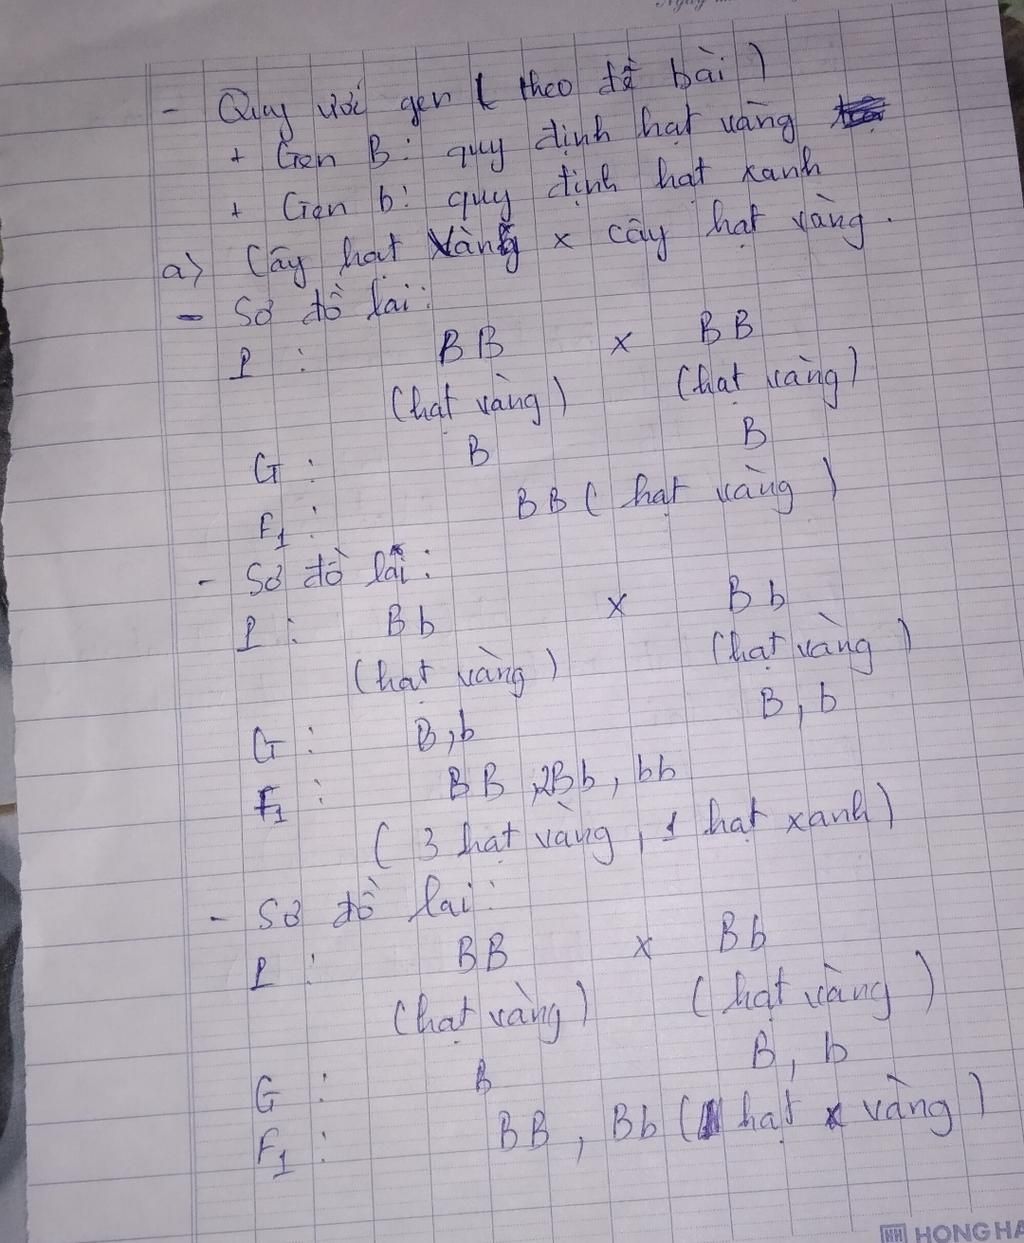 - Quy ước gen ( theo đề bài )
+ Gen B: quy định hạt vàng
+ Gen b: quy định hạt xanh
a) Cây hạt vàng x cây hạt vàng.
- Sơ đồ lai:
P : BB x BB
(hạt vàng) (hạt vàng)
G : B B
F1 : BB ( hạt vàng )
- Sơ đồ lai:
P : Bb x Bb
(hạt vàng) (hạt vàng)
G : B,b B, b
F1 : BB, 2Bb, bb
( 3 hạt vàng, 1 hạt xanh)
- Sơ đồ lai:
P : BB x Bb
(hạt vàng) ( hạt vàng )
G : B B, b
F1 : BB , Bb ( hạt vàng )
HONG HA